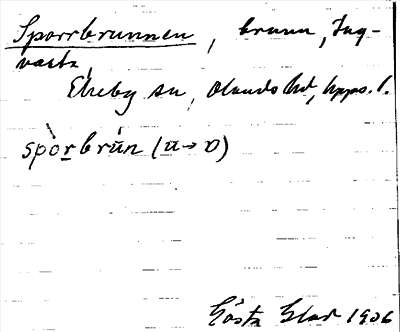 Sporrbrunnen, brunn, Ing-
vasta,
Ekeby sn, Olands hd, Upps. l.
spòrbrún (u→o)
Gösta Elad 1906